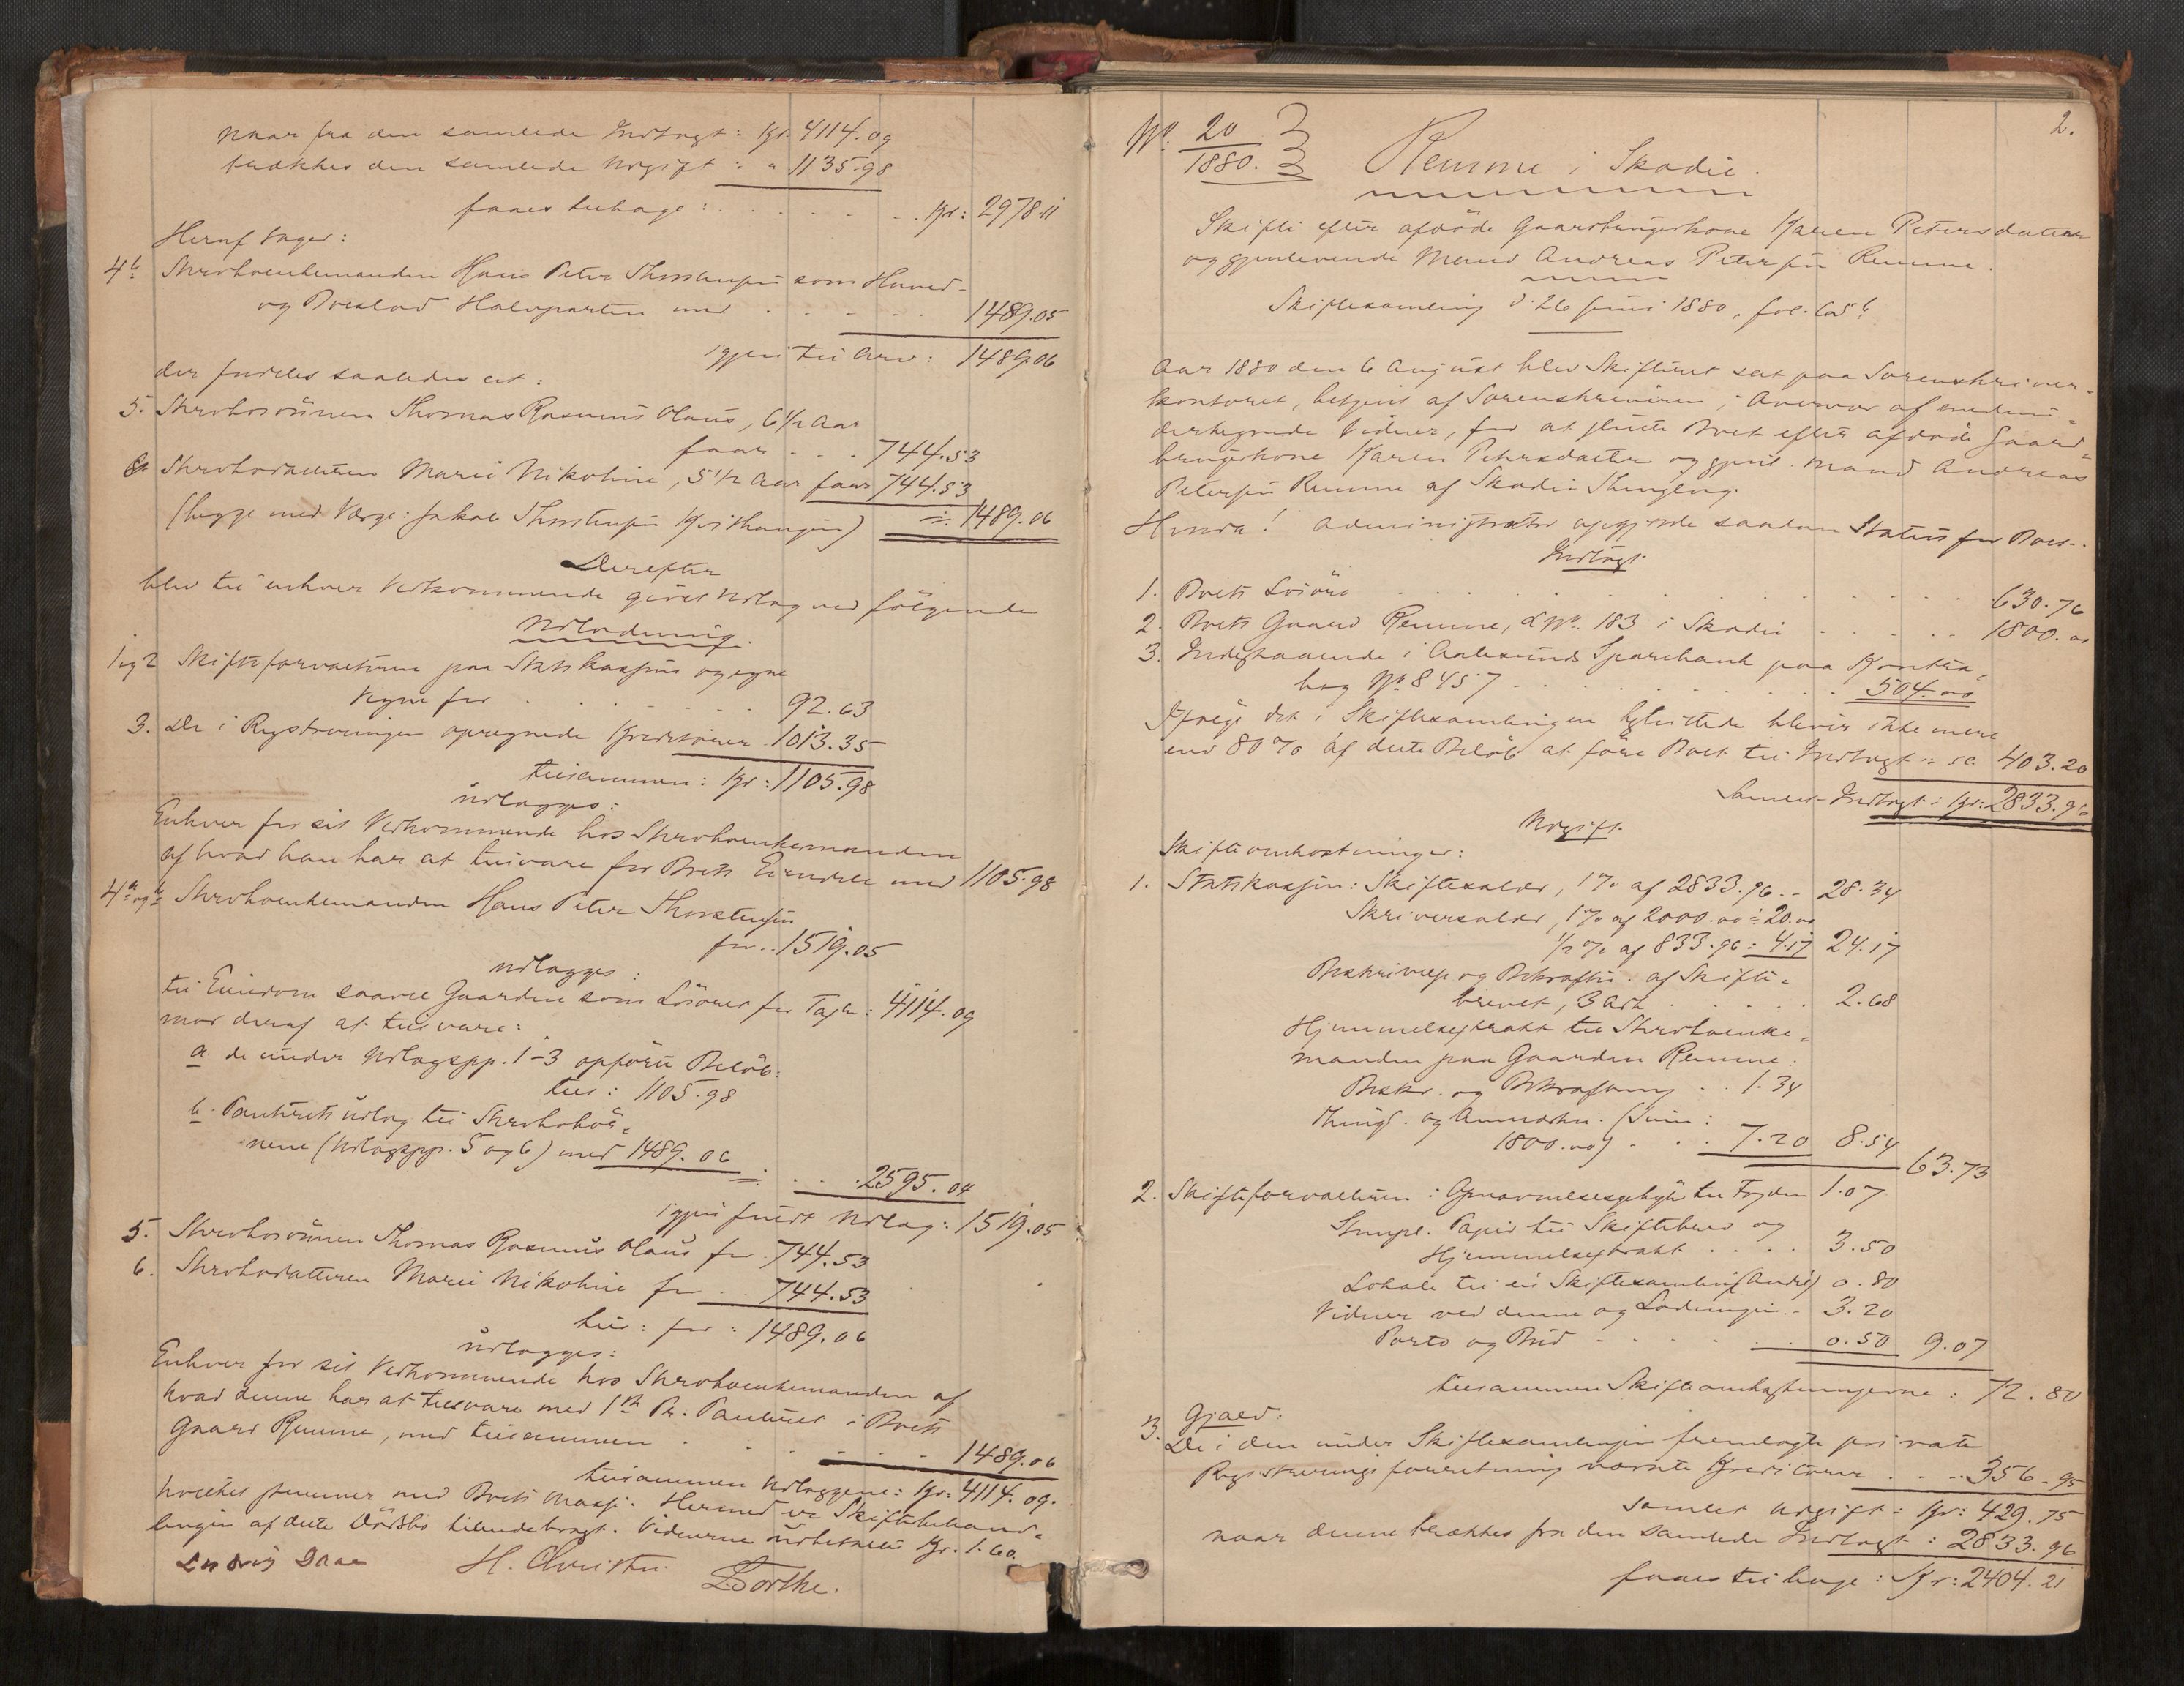 naar fra den samlede Indtægt: Kr. 4114.09
trækkes den samlede Udgift: " 1135.98
faaes tilbage: . . . . . . Kr: 2978.11
Heraf tager:
4b Stervboenkemanden Hans Peter Thorstensen som Hoved-
og Boeslod Halvparten med . . . . . 1489.05
igjen til Arv: 1489.06
der fordeles saaledes at:
5. Stervbosönnen Thomas Rasmus Olaus, 6½ Aar
faar . . . 744.53
6. Stervbodatteren Marie Nikoline, 5½ Aar faar 744.53
(begge med Værge: Jakob Thorstensen) 1489.06
Derefter
blev til enhver Vedkommende gjort Udlæg ved fölgende
Udlodning.
1 og 2 Skifteforvalteren paa Statskassens og egne
Vegne for . . . . . . 92.63
3. De i Registreringen opregnede Kreditorer 1013.35
tilsammen: Kr: 1105.98
udlægges:
Enhver for sit Vedkommende hos Stervboenkemanden
af hvad han har at tilsvare for Boets Eiendele med 1105.98
4a og b Stervboenkemanden Hans Peter Thorstensen
for . . 1519.05
udlægges:
til Eiendom saavel Gaarden som Lösöret for Taxt: 4114.09
mod deraf at tilsvare:
a. de under Udlægspp. 1-3 opförte Belöb:
tils: 1105.98
b. Panteretsudlæg til Stervbobör-
nene (Udlægspp. 5 og 6) med 1489.06 . . . 2595.04
igjen fuldt Udlæg: 1519.05
5. Stervbosönnen Thomas Rasmus Olaus for 744.53
6. Stervbodatteren Marie Nikoline for . . 744.53
tils: for: 1489.06
udlægges:
Enhver for sit Vedkommende hos Stervboenkemanden af
hvad denne har at tilsvare med 1ste Pr. Panteret i Boets
Gaard Remme, med tilsammen . . . . . . 1489.06
tilsammen Udlæggene: Kr: 4114.09.
hvilket stemmer med Boets Masse. Hermed er Skiftebehand-
lingen af dette Dödsbo tilendebragt. Vidnerne udbetaltes Kr. 1.60.
Ludvig Daae H. Christen.
2.
No: 20/1880. Remme i Skodie.
Skifte efter afdöde Gaardbrugerkone Karen Petersdatter
og gjenlevende Mand Andreas Petersen Remme.
Skiftesamling d. 26 Juni 1880, fol. 65b
Aar 1880 den 6 August blev Skifteret sat paa Sorenskriver-
kontoret, betjent af Sorenskriveren, i Overvær af meden-
dertegnede Vidner, for at slutte Boet efter afdöde Gaard-
brugerkone Karen Petersdatter og gjenl. Mand Andreas
Petersen Remme af Skodie Thinglag.
Hvorda! Administrator opgjorde saadan Status for Boet.
Indtægt.
1. Boets Lösöre . . . . . . . . . 630.76
2. Boets Gaard Remme, L.No. 183 i Skodie . . . . . 1800.00
3. Indestaaende i Aalesunds Sparebank paa Kontra-
bog No 8457 . . . . . . . . 504.00
Ifölge det i Skiftesamlingen bliver ikke mere
end 80% af dette Belöb at före Boet til Indtægt: 403.20
Samlet Indtægt: Kr: 2833.96
Udgift.
Skifteomkostninger:
1. Statskassen: Skiftesalær, 1% af 2833.96 . - 28.34
Skriversalær, 1% af 2000.00 = 20.00
½% af 833.96 = 4.17 24.17
Beskrivelse og Bekræftn. af Skifte-
brevet, 3 Ark . . . . . . 2.68
Hjemmelsextrakt til Stervboenke-
manden paa Gaarden Remme.
Beskr. og Bekræftning . . 1.34
Thingl. og Anmærkn. (Sum:
1800.00) . . . 7.20 8.54
63.73
2. Skifteforvalteren: Opnævnelsesgebyr til Fogden 1.07
Stempl. Papir til Skiftebrev og
Hjemmelsextrakt . . . . 3.50
Lokale til en Skiftesamling (Andel) 0.80
Vidner ved denne og Lodningen . 3.20
Porto og Bud . . . . . . 0.50 9.07
tilsammen Skifteomkostningerne: 72.80
Gjæld:
3. De i den under Skiftesamlingen fremlagte private
Registreringsforretning nævnte Kreditorer . . . 356.95
samlet Udgift: Kr: 429.75
naar denne trækkes fra den samlede Indtægt: 2833.96
faaes tilbage: Kr: 2404.21